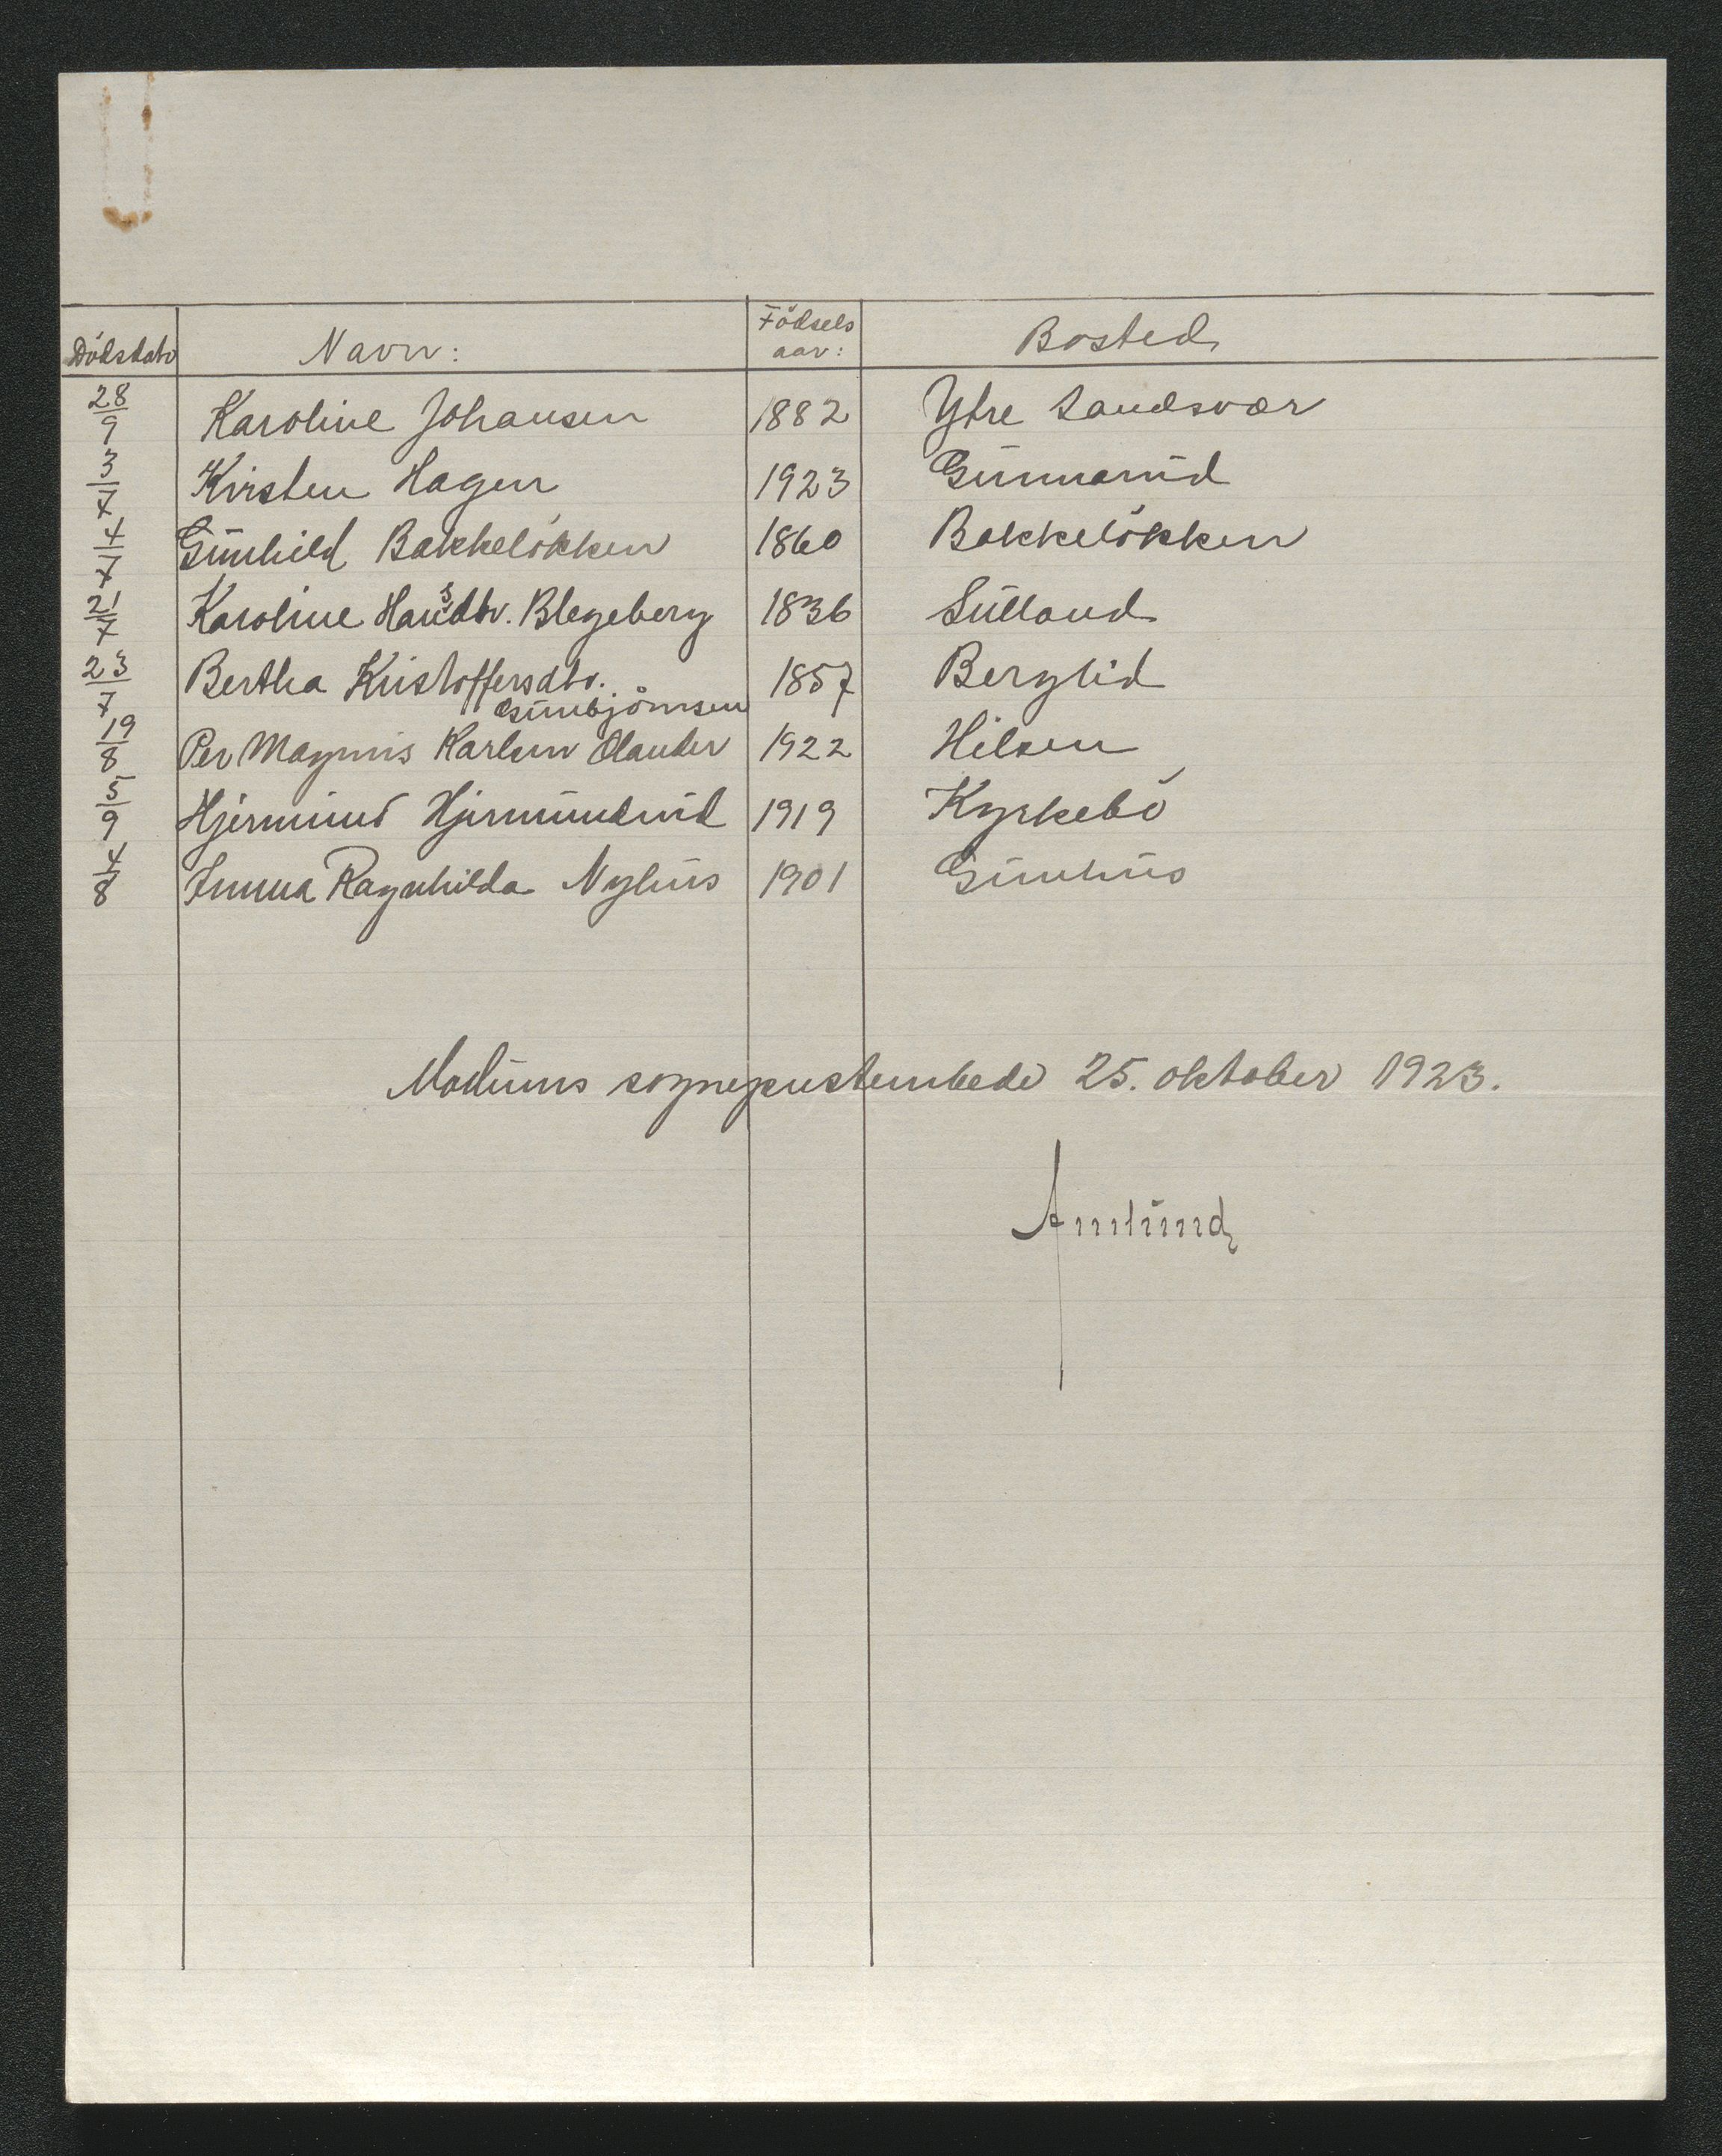 Dödsdato Navn: Födsels aar: Bosted
28/9 Karoline Johansen 1882 Ytre Sandsvær
3/7 Kirsten Hagen 1923 Gunnarud
4/7 Gunhild Bakkelökken 1860 Bakkelökken
21/7 Karoline Hansdtr. Blegeberg 1836 Sulland
23/7 Bertha Kristoffersdtr. 1857 Berglid
Gunbjörnsen
19/8 Per Magnus Karlsen Olander 1922 Hilsen
5/9 Hjermund Hjermundrud 1919 Kyrkebö
4/8 Inma Ragnhilda Nyhus 1901 Gunhus
Modums sogneprestembede 25. oktober 1923.
Amlund